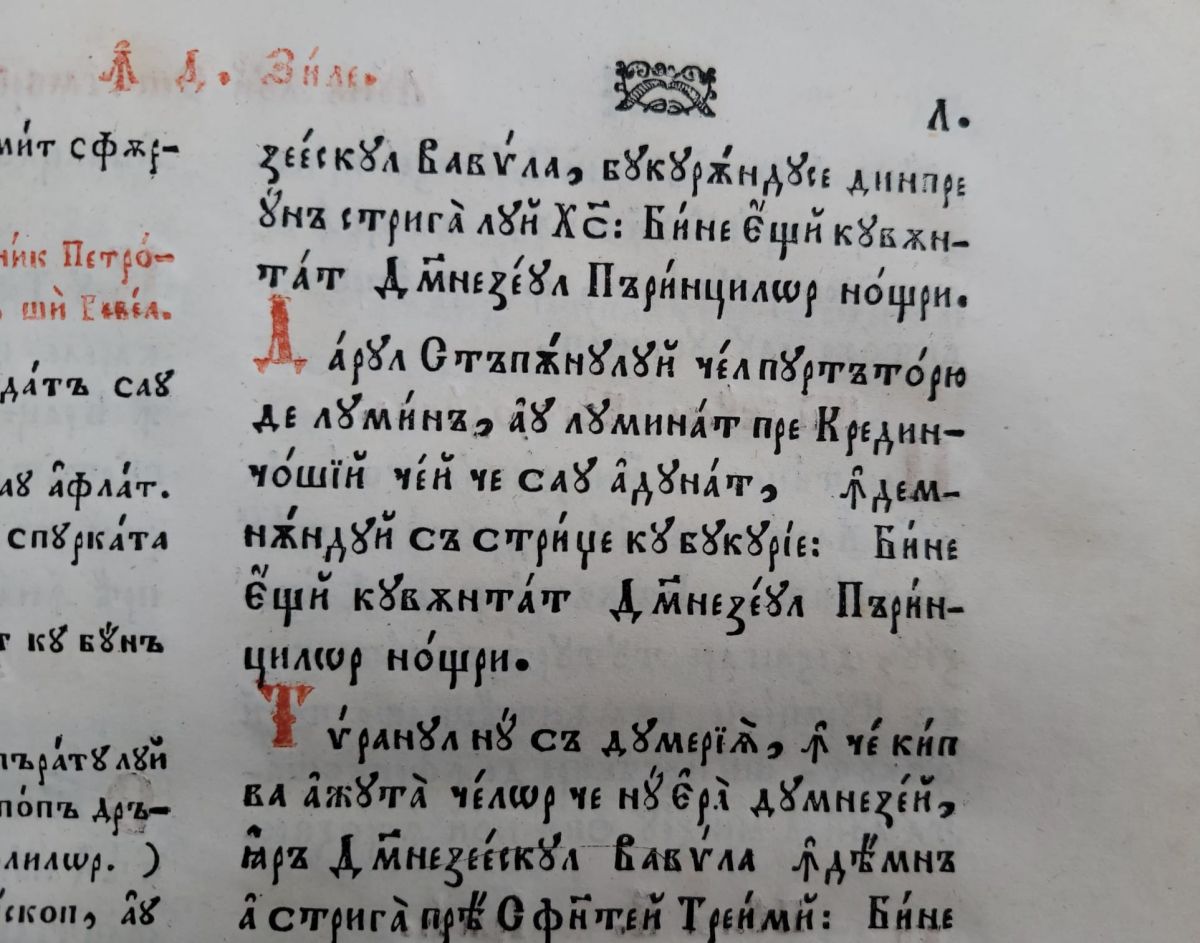 Ꙟ Д. Зи́ле.
Л.
ми́т сфѫр-
ник Петро́-
шѝ Еквел.
да́тъ саꙋ
аꙋ а҆фла́т.
спꙋрка́та
кꙋ бꙋ́нъ
пъра́тꙋлꙋй
по́пъ дръ-
лилѡр. )
скоп, а҆ꙋ
зее́скꙋл Вавѵ́ла, бꙋкꙋрѫ́ндꙋсе динпре
ꙋ҆́нъ стрига̀ лꙋй Хс҃: Би́не Є҆́щй кꙋвѫн-
та́т Дм҃незе́ꙋл Пъри́нцилѡр но́щри.
Да́рꙋл Стъпѫ́нꙋлꙋй че́л пꙋртъто́рю
де лꙋми́нъ, а҆ꙋ лꙋмина́т пре Крединчо́-
чо́шїй че́й че саꙋ а҆дꙋна́т, ꙟ҆дем-
нѫ́ндꙋй съ стри́џе кꙋ бꙋкꙋрі́е: Би́не
Є҆́щй кꙋвѫнта́т Дм҃незе́ꙋл Пъри́н-
цилѡр но́щри.
Тѵ́ранꙋл нꙋ́ съ дꙋмерїѧ̀, ꙟ҆ че́ ки́п
ва а҆жꙋта̀ че́лѡр че нꙋ́ Є҆ра̀ дꙋмнезе́й,
ꙗ҆ръ Дм҃незее́скꙋл Вавѵ́ла ꙟ҆дѣ́мнъ
а҆ стрига̀ прѣ́ Сфи҃тей Треи́мй: Би́не